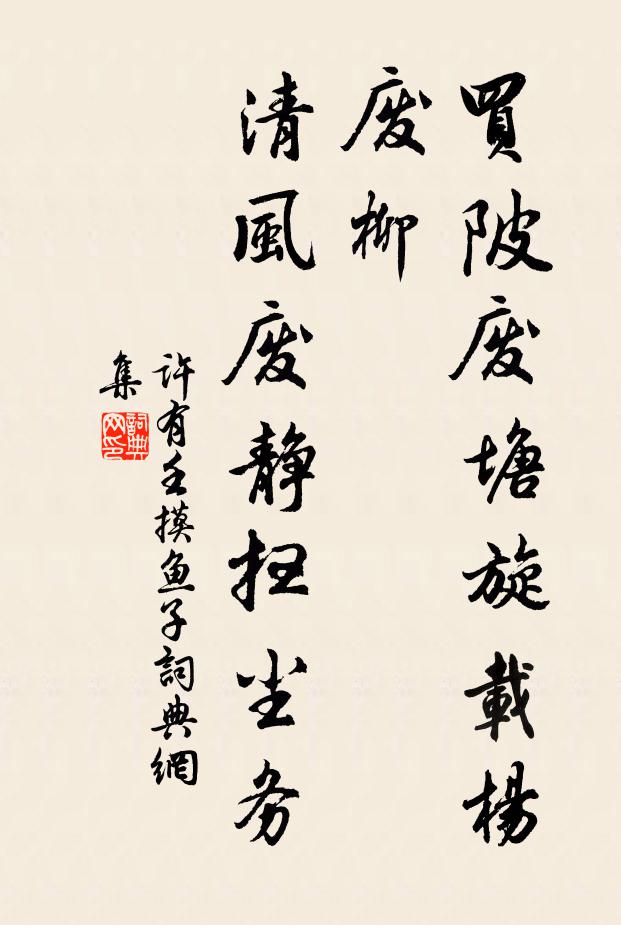 買陂废塘旋載楊
废柳
清風废静扫尘务
許有壬摸鱼子詞典網
集
詞典
网印